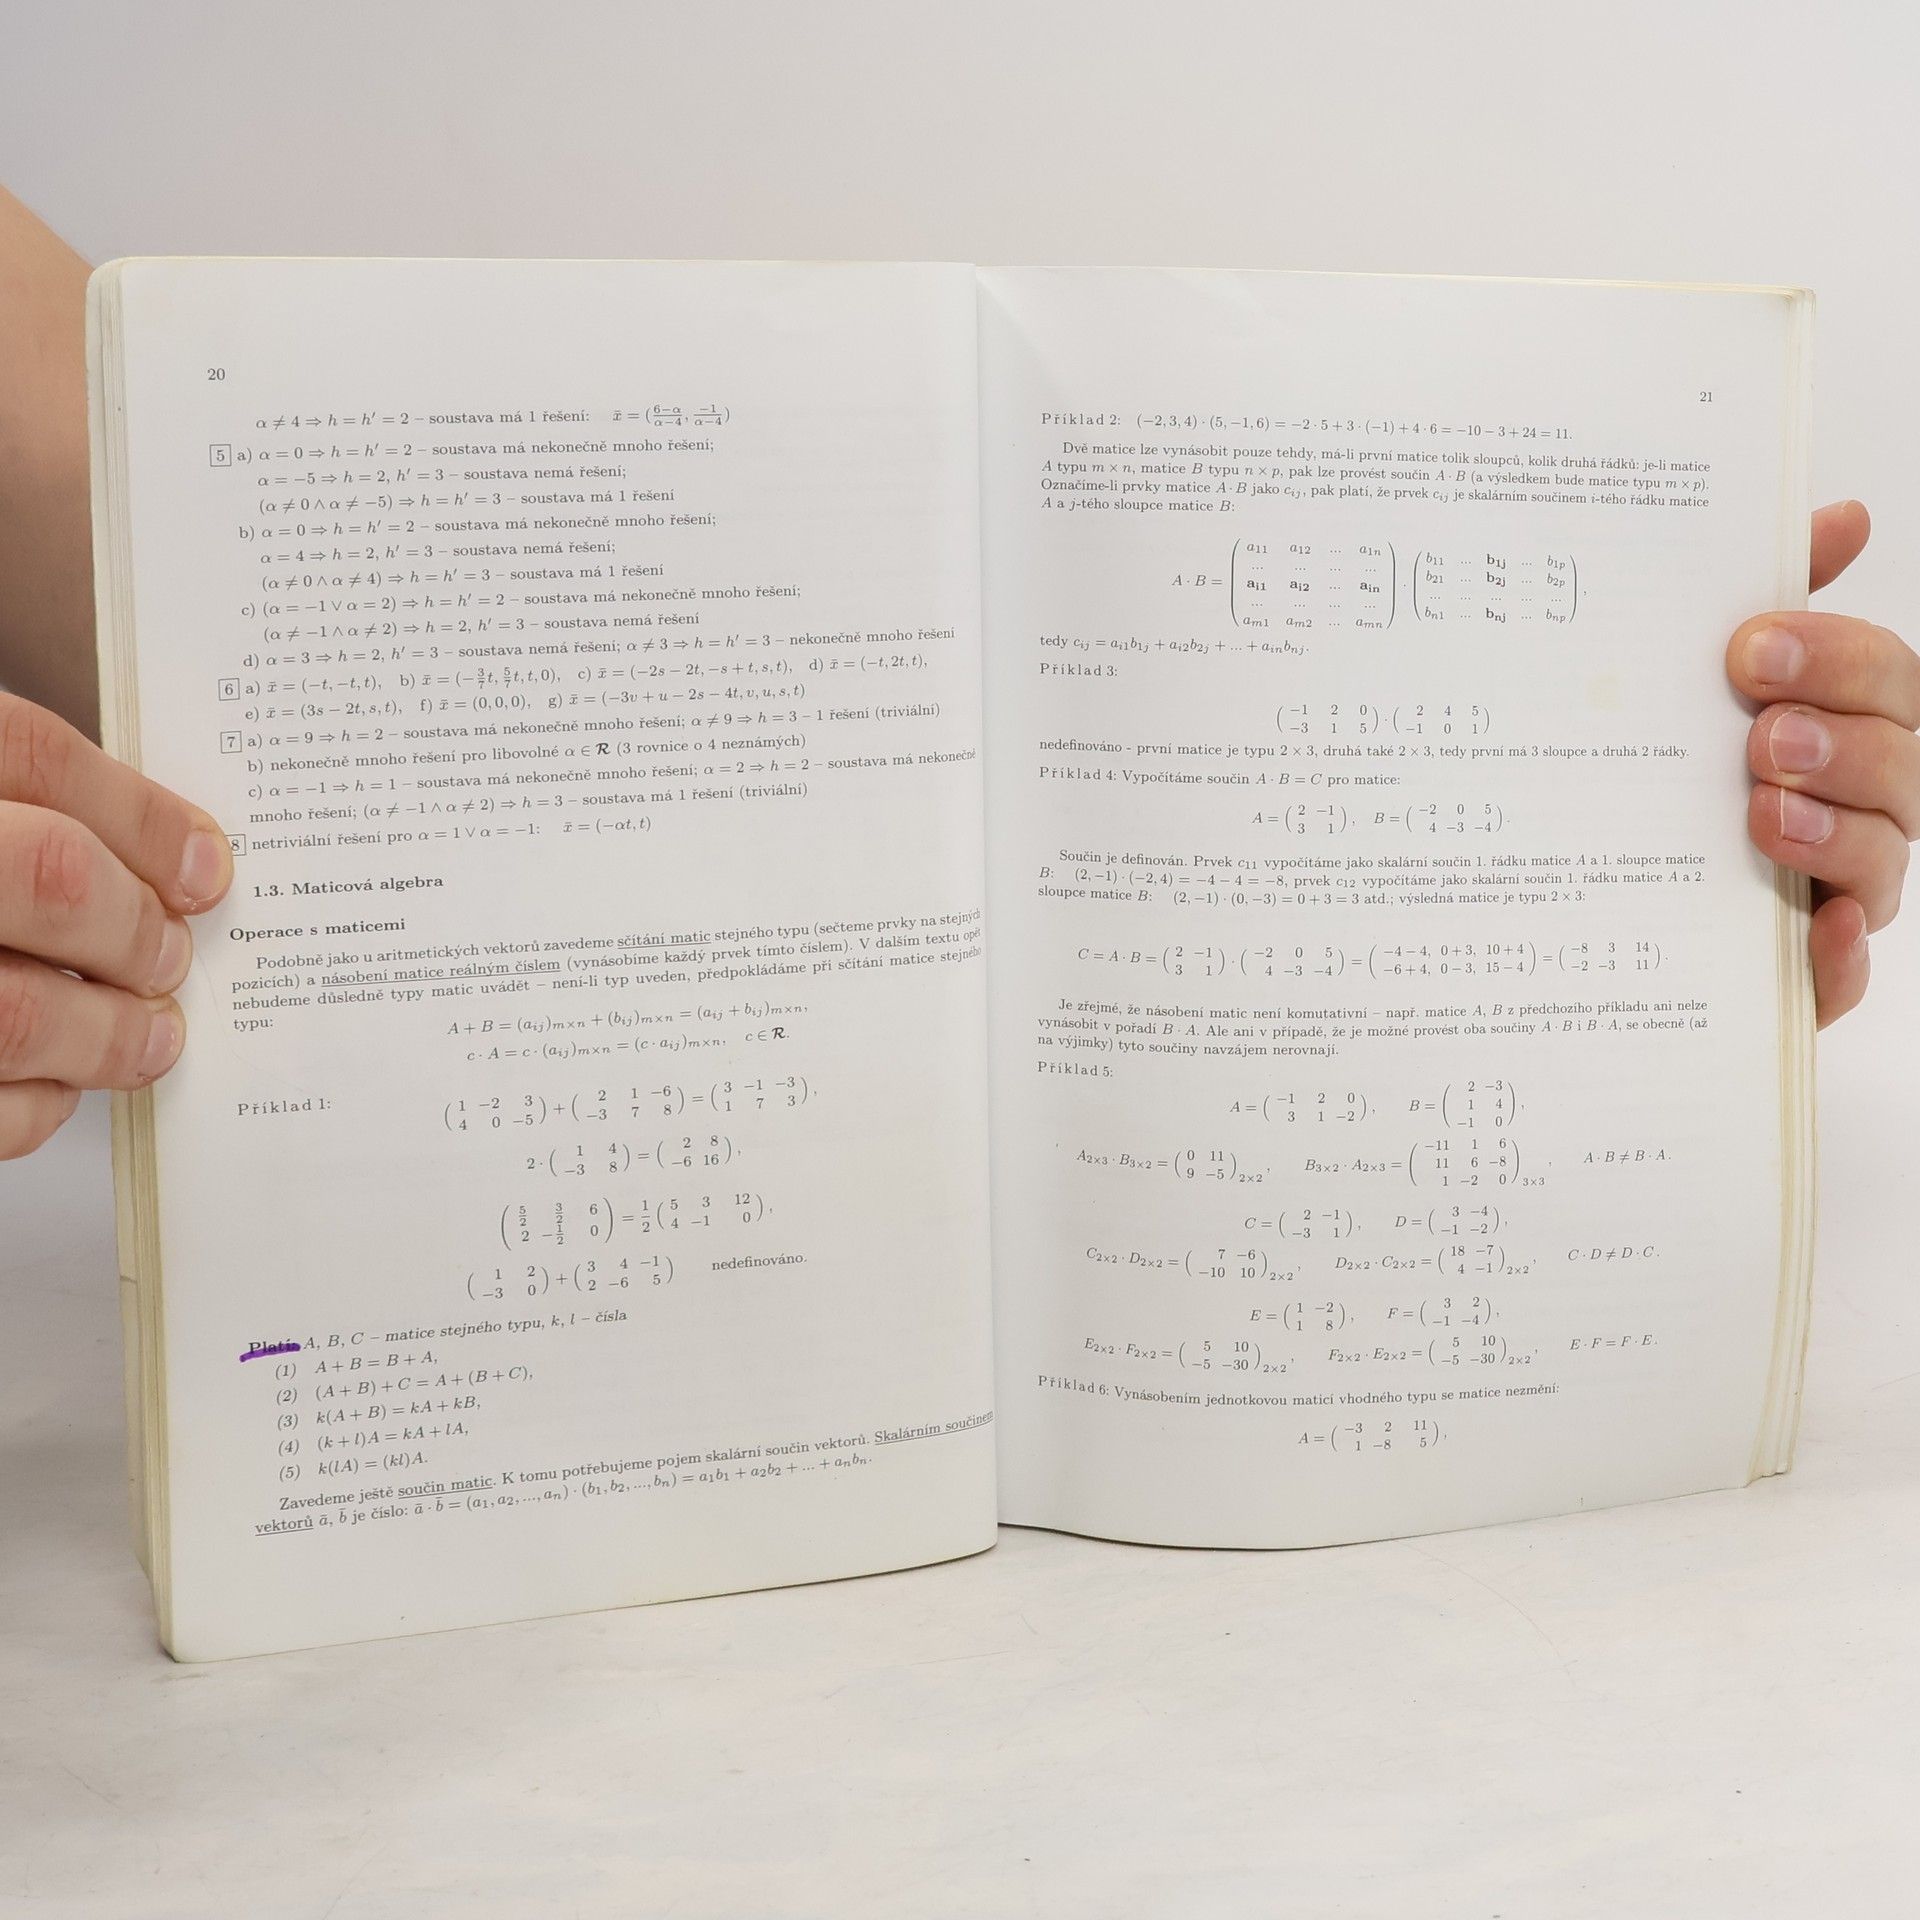 20
α ≠ 4 ⇒ h = h′ = 2 – soustava má 1 řešení: x̄ = (6−α/α−4, −1/α−4)
5 a) α = 0 ⇒ h = h′ = 2 – soustava má nekonečně mnoho řešení;
α = −5 ⇒ h = 2, h′ = 3 – soustava nemá řešení;
(α ≠ 0 ∧ α ≠ −5) ⇒ h = h′ = 3 – soustava má 1 řešení
b) α = 0 ⇒ h = h′ = 2 – soustava má nekonečně mnoho řešení;
α = 4 ⇒ h = 2, h′ = 3 – soustava nemá řešení;
(α ≠ 0 ∧ α ≠ 4) ⇒ h = h′ = 3 – soustava má 1 řešení
c) (α = −1 ∨ α = 2) ⇒ h = h′ = 2 – soustava má nekonečně mnoho řešení;
(α ≠ −1 ∧ α ≠ 2) ⇒ h = 2, h′ = 3 – soustava nemá řešení
d) α = 3 ⇒ h = 2, h′ = 3 – soustava nemá řešení; α ≠ 3 ⇒ h = h′ = 3 – nekonečně mnoho řešení
6 a) x̄ = (−t, −t, t), b) x̄ = (−3/7t, 5/7t, t, 0), c) x̄ = (−2s − 2t, −s + t, s, t), d) x̄ = (−t, 2t, t),
e) x̄ = (3s − 2t, s, t), f) x̄ = (0, 0, 0), g) x̄ = (−3v + u − 2s − 4t, v, u, s, t)
7 a) α = 9 ⇒ h = 2 – soustava má nekonečně mnoho řešení; α ≠ 9 ⇒ h = 3 – 1 řešení (triviální)
b) nekonečně mnoho řešení pro libovolné α ∈ R (3 rovnice o 4 neznámých)
c) α = −1 ⇒ h = 1 – soustava má nekonečně mnoho řešení; α = 2 ⇒ h = 2 – soustava má nekonečně
mnoho řešení; (α ≠ −1 ∧ α ≠ 2) ⇒ h = 3 – soustava má 1 řešení (triviální)
8 netriviální řešení pro α = 1 ∨ α = −1: x̄ = (−αt, t)
1.3. Maticová algebra
Operace s maticemi
Podobně jako u aritmetických vektorů zavedeme sčítání matic stejného typu (sečteme prvky na stejných
pozicích) a násobení matice reálným číslem (vynásobíme každý prvek tímto číslem). V dalším textu opět
nebudeme důsledně typy matic uvádět – není-li typ uveden, předpokládáme při sčítání matice stejného
typu:
A + B = (aij)m×n + (bij)m×n = (aij + bij)m×n,
c · A = c · (aij)m×n = (c · aij)m×n, c ∈ R.
Příklad 1:
( 1 −2 3 ; 4 0 −5 ) + ( 2 1 −6 ; −3 7 8 ) = ( 3 −1 −3 ; 1 7 3 ),
2 · ( 1 4 ; −3 8 ) = ( 2 8 ; −6 16 ),
( 5/2 3/2 6 ; 2 −1/2 0 ) = 1/2 ( 5 3 12 ; 4 −1 0 ),
( 1 2 ; −3 0 ) + ( 3 4 −1 ; 2 −6 5 ) nedefinováno.
Platí: A, B, C – matice stejného typu, k, l – čísla
(1) A + B = B + A,
(2) (A + B) + C = A + (B + C),
(3) k(A + B) = kA + kB,
(4) (k + l)A = kA + lA,
(5) k(lA) = (kl)A.
Zavedeme ještě součin matic. K tomu potřebujeme pojem skalární součin vektorů. Skalárním součinem
vektorů ā, b̄ je číslo: ā · b̄ = (a1, a2, ..., an) · (b1, b2, ..., bn) = a1b1 + a2b2 + ... + anbn.
21
Příklad 2: (−2, 3, 4) · (5, −1, 6) = −2 · 5 + 3 · (−1) + 4 · 6 = −10 − 3 + 24 = 11.
Dvě matice lze vynásobit pouze tehdy, má-li první matice tolik sloupců, kolik druhá řádků: je-li matice
A typu m × n, matice B typu n × p, pak lze provést součin A · B (a výsledkem bude matice typu m × p).
Označíme-li prvky matice A · B jako cij, pak platí, že prvek cij je skalárním součinem i-tého řádku matice
A a j-tého sloupce matice B:
A · B = ( a11 a12 ... a1n ; ... ... ... ... ; ai1 ai2 ... ain ; ... ... ... ... ; am1 am2 ... amn ) · ( b11 ... b1j ... b1p ; b21 ... b2j ... b2p ; ... ... ... ... ... ; bn1 ... bnj ... bnp ),
tedy cij = ai1b1j + ai2b2j + ... + ainbnj.
Příklad 3:
( −1 2 0 ; −3 1 5 ) · ( 2 4 5 ; −1 0 1 )
nedefinováno - první matice je typu 2 × 3, druhá také 2 × 3, tedy první má 3 sloupce a druhá 2 řádky.
Příklad 4: Vypočítáme součin A · B = C pro matice:
A = ( 2 −1 ; 3 1 ), B = ( −2 0 5 ; 4 −3 −4 ).
Součin je definován. Prvek c11 vypočítáme jako skalární součin 1. řádku matice A a 1. sloupce matice
B: (2, −1) · (−2, 4) = −4 − 4 = −8, prvek c12 vypočítáme jako skalární součin 1. řádku matice A a 2.
sloupce matice B: (2, −1) · (0, −3) = 0 + 3 = 3 atd.; výsledná matice je typu 2 × 3:
C = A · B = ( 2 −1 ; 3 1 ) · ( −2 0 5 ; 4 −3 −4 ) = ( −4 − 4, 0 + 3, 10 + 4 ; −6 + 4, 0 − 3, 15 − 4 ) = ( −8 3 14 ; −2 −3 11 ).
Je zřejmé, že násobení matic není komutativní – např. matice A, B z předchozího příkladu ani nelze
vynásobit v pořadí B · A. Ale ani v případě, že je možné provést oba součiny A · B i B · A, se obecně (až
na výjimky) tyto součiny navzájem nerovnají.
Příklad 5:
A = ( −1 2 0 ; 3 1 −2 ), B = ( 2 −3 ; 1 4 ; −1 0 ),
A2×3 · B3×2 = ( 0 11 ; 9 −5 )2×2, B3×2 · A2×3 = ( −11 1 6 ; 11 6 −8 ; 1 −2 0 )3×3, A · B ≠ B · A.
C = ( 2 −1 ; −3 1 ), D = ( 3 −4 ; −1 −2 ),
C2×2 · D2×2 = ( 7 −6 ; −10 10 )2×2, D2×2 · C2×2 = ( 18 −7 ; 4 −1 )2×2, C · D ≠ D · C.
E = ( 1 −2 ; 1 8 ), F = ( 3 2 ; −1 −4 ),
E2×2 · F2×2 = ( 5 10 ; −5 −30 )2×2, F2×2 · E2×2 = ( 5 10 ; −5 −30 )2×2, E · F = F · E.
Příklad 6: Vynásobením jednotkovou maticí vhodného typu se matice nezmění:
A = ( −3 2 11 ; 1 −8 5 ),